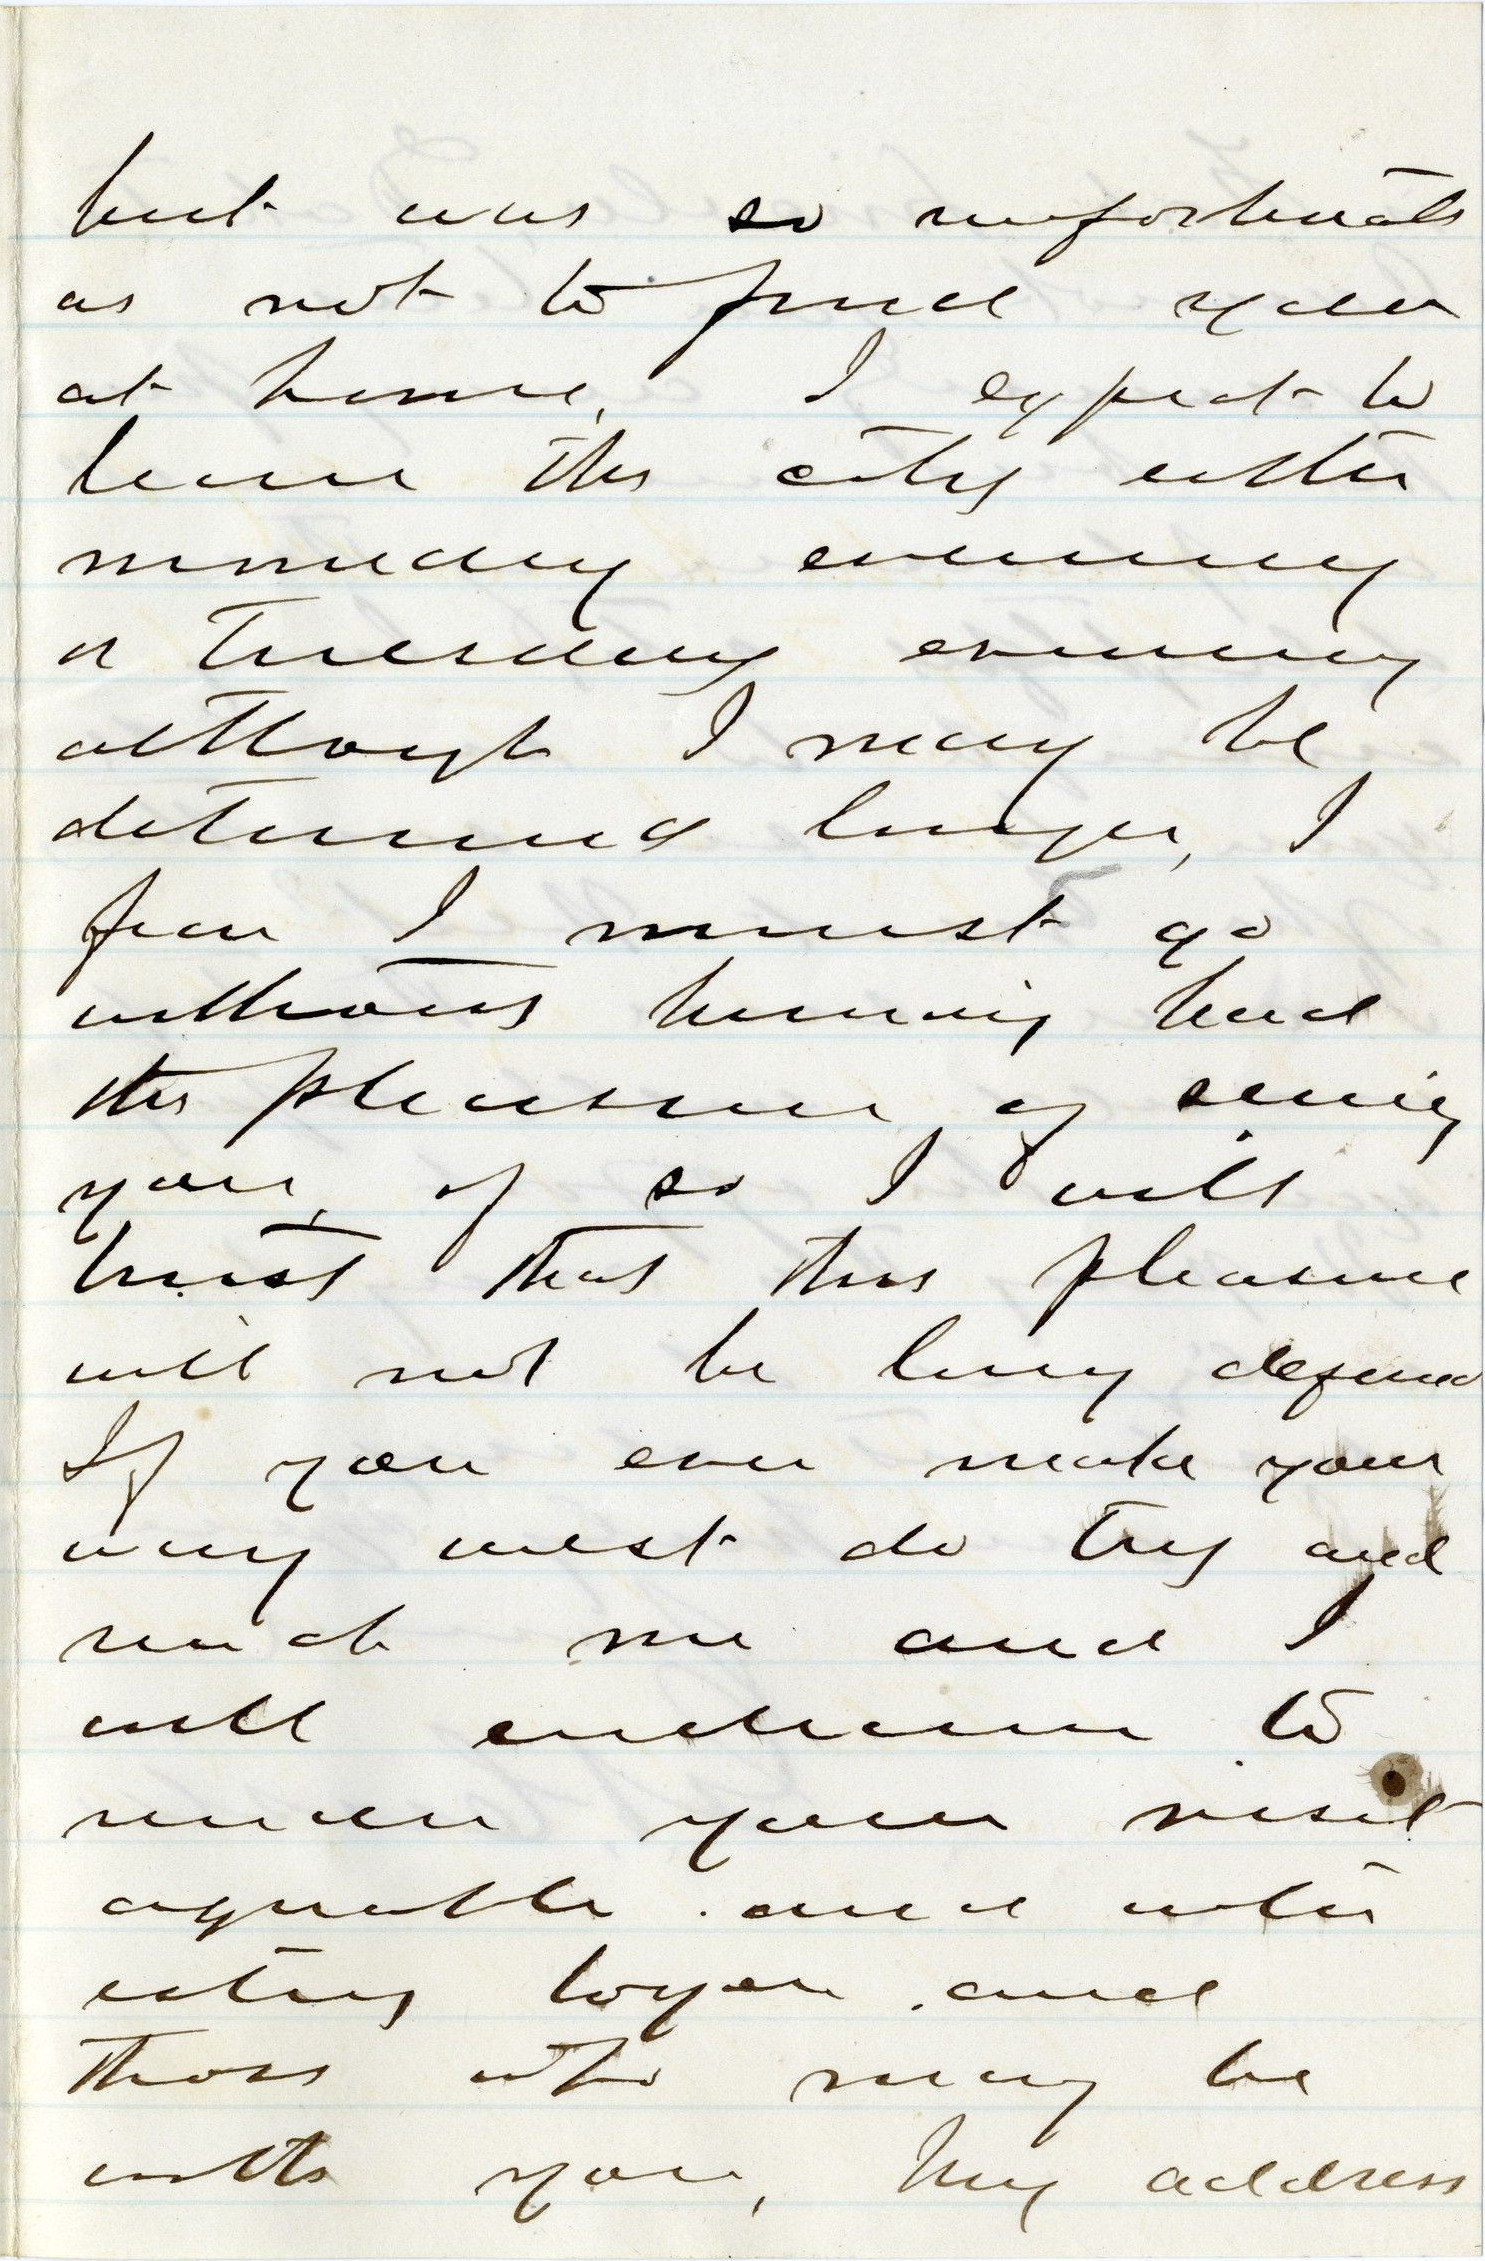 but was so unfortunate
as not to find you
at home, I expect to
leave the city either
monday evening
or Tuesday evening
although I may be
detained longer, I
fear I must go
without having had
the pleasure of seeing
you, if so I will
trust that this pleasure
will not be long defered
If you ever make your
way west do try and
reach me and I
will endeavor to
render your visit
agreable and inter
esting to you and
those who may be
with you, My address